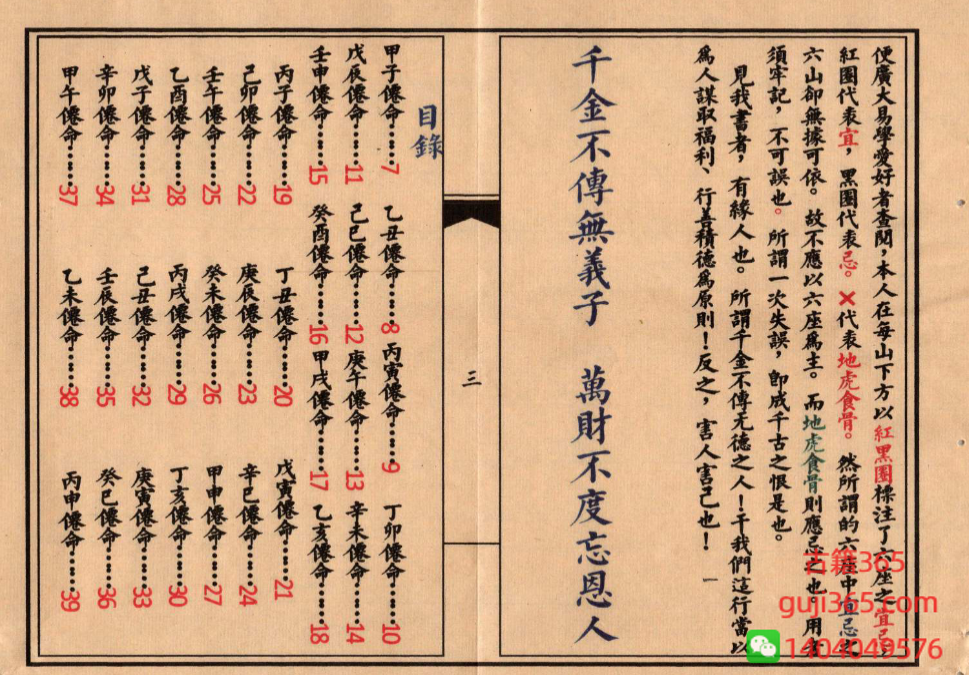 便廣大易學愛好者查閱，本人在每山下方以紅黑圈標注了六座之宜忌，
紅圈代表宜，黑圈代表忌。×代表地虎食骨。然所謂的六座中宜忌之
六山卻無據可依。故不應以六座為主。而地虎食骨則應忌之也。用者
須牢記，不可誤也。所謂一次失誤，即成千古之恨是也。
見我書者，有緣人也。所謂千金不傳无德之人！干我們這行當以
為人謀取福利、行善積德為原則！反之，害人害己也！ 一
千金不傳無義子 萬財不度忘恩人
三
目錄
甲子僊命……7 乙丑僊命……8 丙寅僊命……9 丁卯僊命……10
戊辰僊命……11 己巳僊命……12 庚午僊命……13 辛未僊命……14
壬申僊命……15 癸酉僊命……16 甲戌僊命……17 乙亥僊命……18
丙子僊命……19 丁丑僊命……20 戊寅僊命……21
己卯僊命……22 庚辰僊命……23 辛巳僊命……24
壬午僊命……25 癸未僊命……26 甲申僊命……27
乙酉僊命……28 丙戌僊命……29 丁亥僊命……30
戊子僊命……31 己丑僊命……32 庚寅僊命……33
辛卯僊命……34 壬辰僊命……35 癸巳僊命……36
甲午僊命……37 乙未僊命……38 丙申僊命……39
古籍365
guji365.com
1404049576